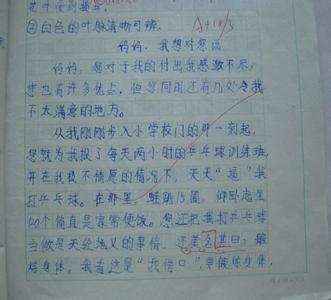 ②白色的叶脉清晰可辨。
A+15/5
妈妈，我想对您说
妈妈，您对于我的付出我感激不尽，
您也有许多优点，但您同时还有几处令我
不太满意的地方。
从我刚刚步入小学校门的那一刻起，
您就为我报了每天两小时的乒乓球训练班，
并在我极不情愿的情况下，天天“逼”我
打乒乓球。在那里，蛙跳15圈，仰卧起坐
120个简直是家常便饭。您还把我打乒乓球
当做是天经地义的事情，还美名其曰：锻
炼身体，我看这是“我借口”，要锻炼身体，